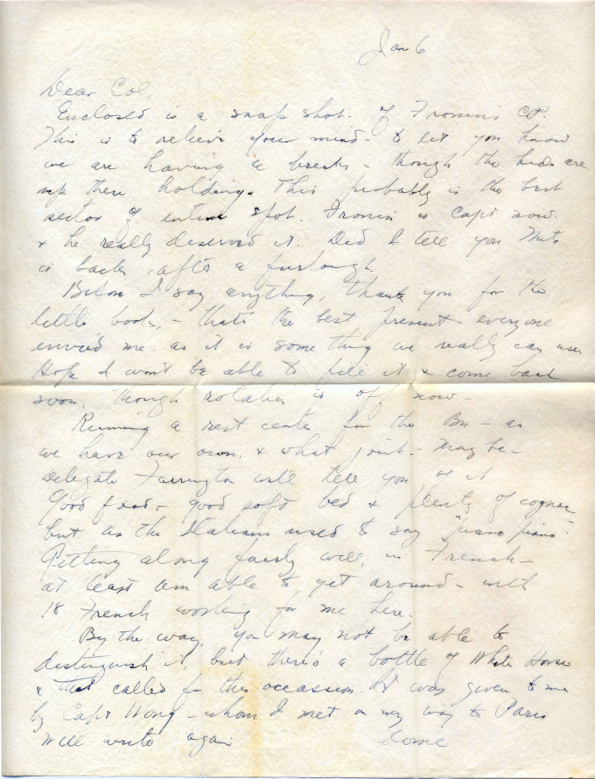 Jan 6
Dear Col,
Enclosed is a snap shot. of Fromms CP.
This is to relieve your mind. & let you know
we are having a break - though the kids are
up there holding. This probably is the best
sector of entire spot. is Capt now.
& he really deserved it. Did I tell you
is back after a furlough.
Before I say anything, thank you for the
little book, - thats the best present - everyone
envied me. as it is some thing we really can use.
Hope I wont be able to fill it & come back
soon, though rotation is off now -
Running a rest center for the Bn - as
we have our own. & what joint - May be -
Delegate Farrington will tell you of it
Good food - good soft bed & plenty of cognac
but as the Italians used to say "piano piano"
Getting along fairly well, in French -
at least am able to get around - with
18 French working for me here.
By the way, you may not be able to
distinguish it, but there's a bottle of White Horse
& that called for this occassion. It was given to me
by Capt Wong - whom I met on my way to Paris
Will write again